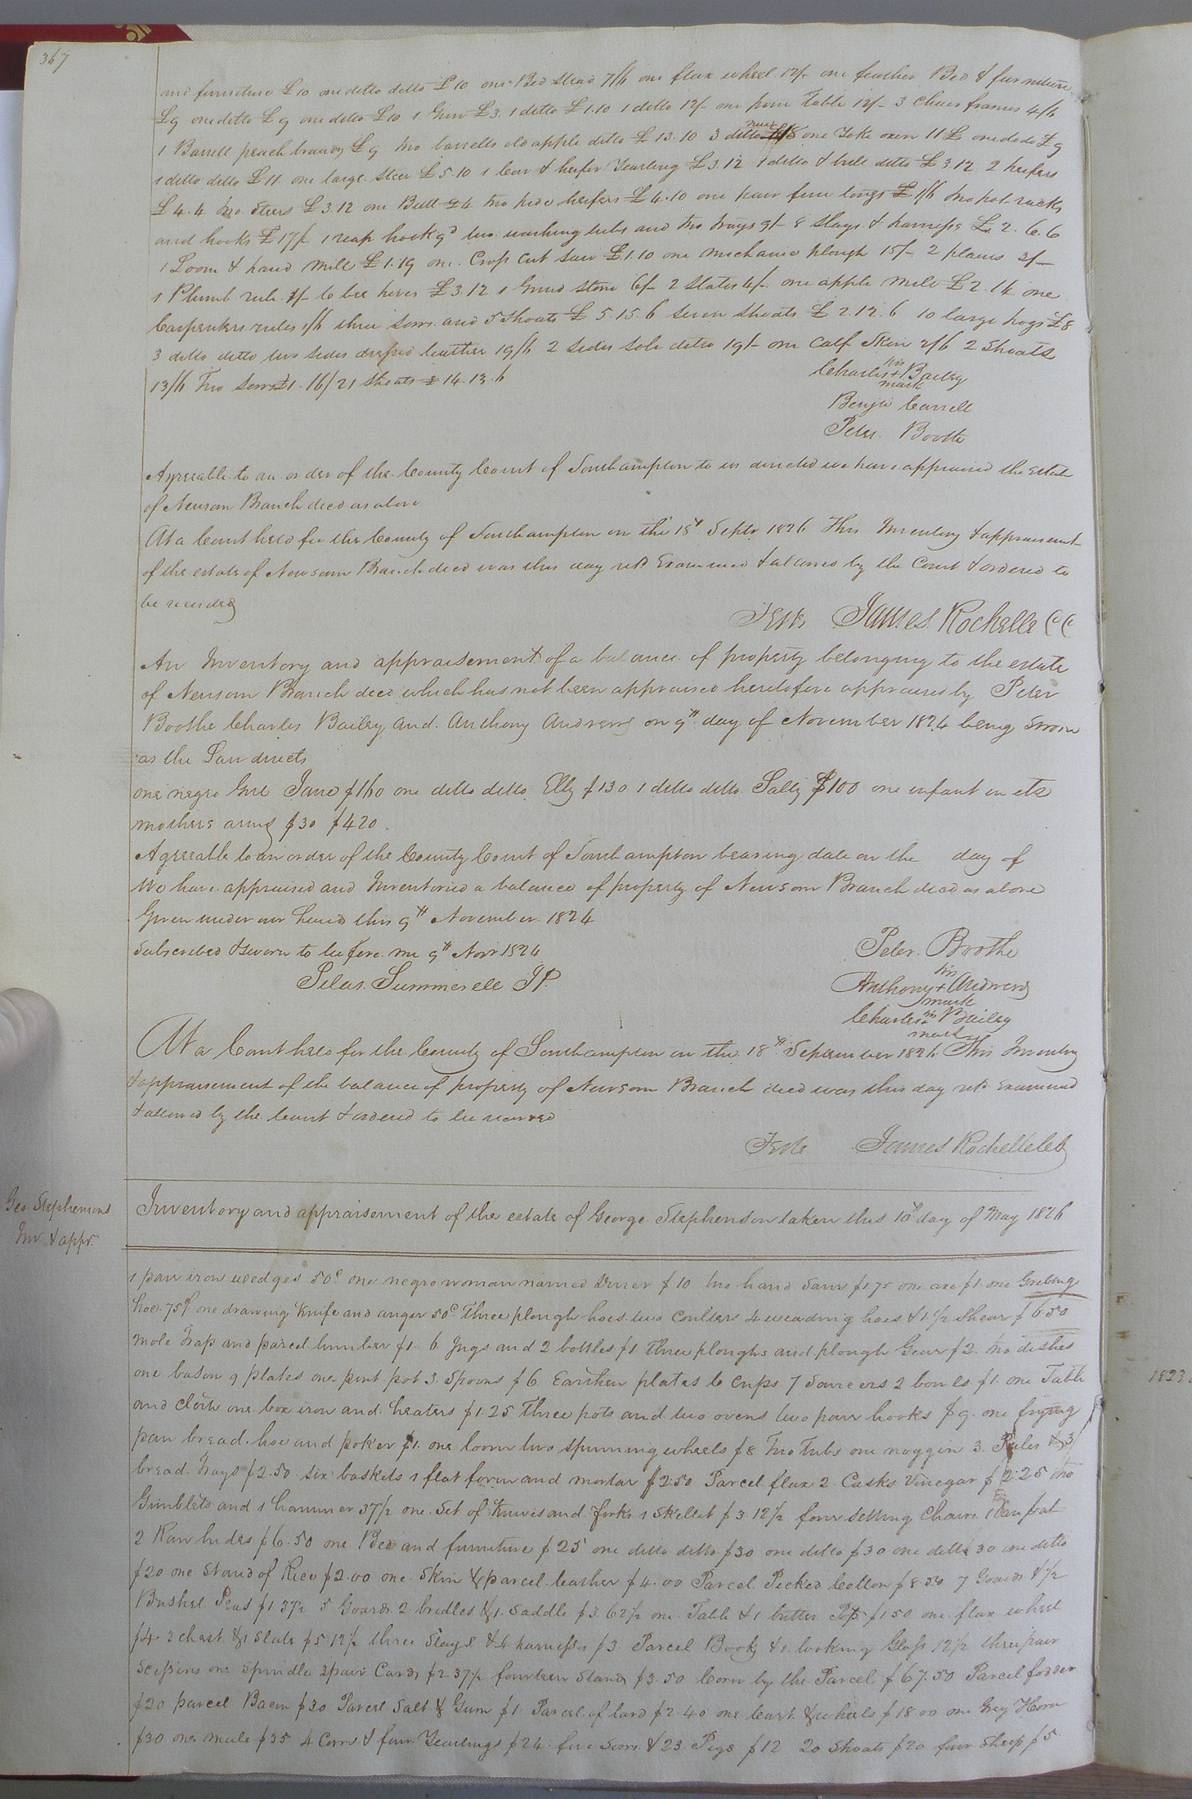 367
and furniture £10 one ditto ditto £10 one Bed stead 7/6 one flax wheel 12/- one feather Bed & furniture
£9 one ditto £9 one ditto £10 1 Gun £3. 1 ditto £1.10 1 ditto 12/- one pine Table 12/- 3 Chair frames 4/6
1 Barrell peach brandy £9 two barrells old apple ditto £13.10 3 ditto £8 one Yoke oxen 11£ one do do £9
1 ditto ditto £11 one large steer £5.10 1 Cow & heifer Yearling £3.12 1 ditto & bull ditto £3.12 2 heifers
£4.4 two steers £3.12 one Bull £4 two pied heifers £4.10 one pair fire tongs 1/6 two pot racks
and hooks 17/- 1 reap hook 9d two washing tubs and two trays 9/- 8 Slays & harness £2.6.6
1 Loom & hand Mill £1.19 one Crop Cut Saw £1.10 one mechanic plough 15/- 2 plains 3/-
1 Plumb rule 1/- 6 bee hives £3.12 1 Grind stone 6/- 2 Slates 4/- one apple Mill £2.14 one
Carpenters rules 1/6 three Sows and 5 Shoats £5.15.6 seven Shoats £2.12.6 10 large hogs £8
3 ditto ditto two sides dressed leather 19/6 2 sides sole ditto 19/- one Calf Skin 2/6 2 Shoats
13/6 Two Sows £1.16/ 21 Shoats £14.13.6
his
Charles + Bailey
mark
Benja Carrell
Peter Boothe
Agreeable to an order of the County Court of Southampton to us directed we have appraised the estate
of Newsom Branch decd as above
At a Court held for the County of Southampton on the 18th Septr 1826 This Inventory & appraisement
of the estate of Newsom Branch decd was this day retd Examined & allowed by the Court & ordered to
be recorded
Teste James Rochelle CC
An Inventory and appraisement of a balance of property belonging to the estate
of Newsom Branch decd which has not been appraised heretofore appraised by Peter
Boothe Charles Bailey and Anthony Andrews on 9th day of November 1824 being Sworn
as the Law directs
one negro Girl Jane $160 one ditto ditto Elly $130 1 ditto ditto Sally $100 one infant in its
mothers arms $30 $420.
Agreeable to an order of the County Court of Southampton bearing date on the day of
We have appraised and Inventoried a balance of property of Newsom Branch decd as above
Given under our hand this 9th November 1824
Subscribed & sworn to before me 9th Novr 1824
Silas Summerell JP
Peter Boothe
his
Anthony + Andrews
mark
Charles his Bailey
mark
At a Court held for the County of Southampton on the 18th September 1826 This Inventory
& appraisement of the balance of property of Newsom Branch decd was this day retd Examined
& allowed by the Court & ordered to be recorded
Teste James Rochelle Clk
Geo Stephensons
Inv & appr.
Inventory and appraisement of the estate of George Stephenson taken this 10th day of May 1826
1 pair iron wedges 50c one negro woman named $10 two hand Saws $1 75 one axe $1. one Grubing
hoe. 75c one drawing Knife and auger 50c Three plough hoes two Coulters 4 weading hoes & 1 1/2 Shear $6 50
Mole Trap and parcel lumber $1. 6 Jugs and 2 bottles $1 Three ploughs and plough Gear $2. two dishes
one bason 9 plates one pint pot 3 Spoons $6 Earthen plates 6 Cups 7 Saucers 2 bowls $1. one Table
and Cloth one box iron and heaters $1.25 Three pots and two ovens two pair hooks $9. one frying
pan bread hoe and poker $1. one loom two spinning wheels $8 Two Tubs one noggin 3. Pales & 3
bread Trays $2.50 Six baskets 1 flat form and mortar $2 50 Parcel flax 2 Casks Vinegar $2 25 two
Gimblets and 1 hammer 37 1/2 one Set of Knives and forks 1 Skellet $3.12 1/2 four setting Chairs
2 Raw hides $6.50 one Bed and furniture $25 one ditto ditto $30 one ditto $30 one ditto 30 one ditto
$20 one Stand of Rice $2.00 one Skin & parcel leather $4.00 Parcel Picked Cotton $8.50 7 Goards & 1/2
Bushel Peas $1 37 1/2 5 Goards 2 bridles & 1. Saddle $3.62 1/2 one Table & 1 butter Pot $1 50 one flax wheel
$4 2 chest & 1 Slate $5.12 1/2 three Slays & 4 harness $3. Parcel Books & 1. looking Glass 12 1/2 three pair
Scissors one Spindle 2 pair Cards $2.37 1/2 fourteen Stands $3.50 Corn by the Parcel $67.50 Parcel fodder
$20 parcel Bacon $30 Parcel Salt & Gum $1 Parcel of lard $2.40 one Cart & wheels $18 00 one Grey Horse
$30 one mule $35 4 Cows & four Yearlings $24 five Sows & 23 Pigs $12 20 Shoats $20 four sheep $5
1823